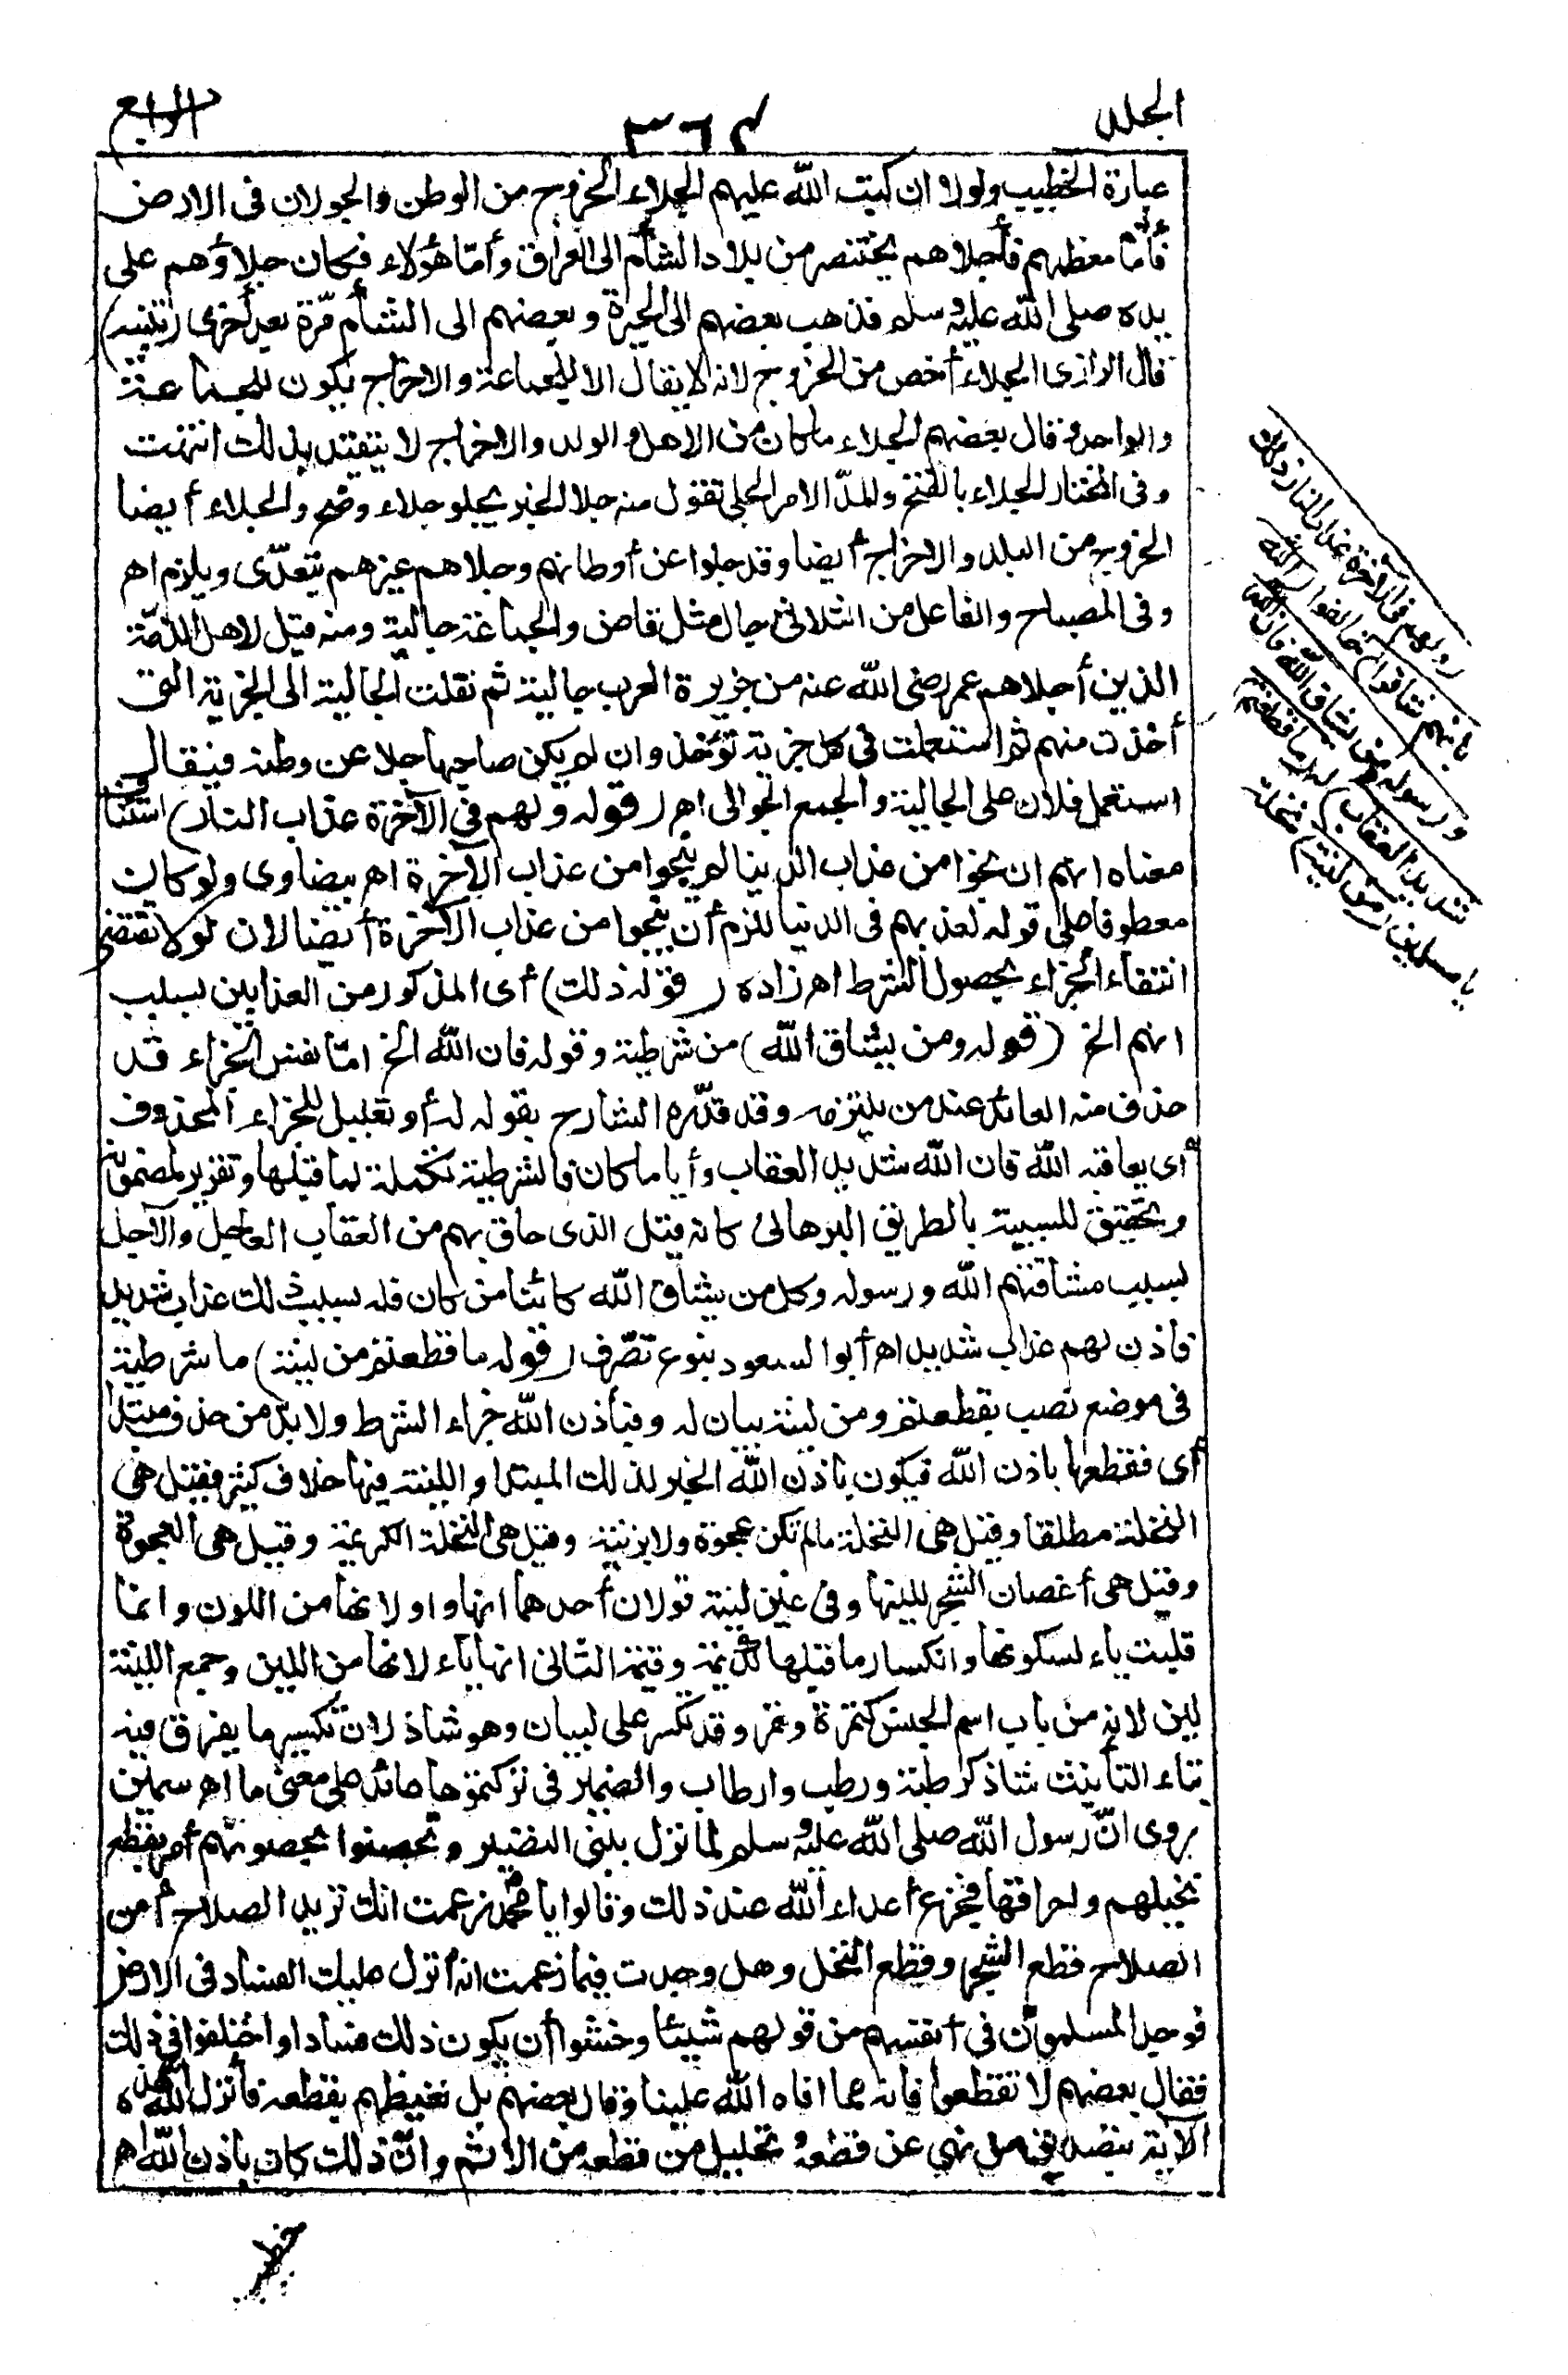 الجلد
٣٦٤
الرابع
عبارة الخطيب ولولا ان كتب الله عليهم الجلاء الخروج من الوطن والجولان فى الارض
فأمّا معظمهم فأجلاهم بختنصر من بلاد الشأم الى العراق وأمّا هؤلاء فكان جلاؤهم على
يده صلى الله عليه وسلم فذهب بعضهم الى الحيرة وبعضهم الى الشأم مرّة بعد أخرى (تنبيه)
قال الرازى الجلاء أخص من الخروج لانه لا يقال الا للجماعة والاخراج يكون للجماعة
والواحد وقال بعضهم الجلاء ما كان من الاهل والولد والاخراج لا يتقيد بذلك انتهت
وفى المختار الجلاء بالفتح والمدّ الامر الجلى تقول منه جلا الخبر يجلو جلاء وضح والجلاء أيضا
الخروج من البلد والاخراج أيضا وقد جلوا عن أوطانهم وجلاهم غيرهم يتعدّى ويلزم اه
وفى المصباح والفاعل من الثلاثى جال مثل قاض والجماعة جالية ومنه قيل لاهل الذمّة
الذين أجلاهم عمر رضى الله عنه من جزيرة العرب جالية ثم نقلت الجالية الى الجزية التى
أخذت منهم ثم استعملت فى كل جزية تؤخذ وان لم يكن صاحبها جلا عن وطنه فيقال
استعمل فلان على الجالية والجمع الجوالى اه (قوله ولهم فى الآخرة عذاب النار) استئناف
معناه انهم ان نجوا من عذاب الدنيا لم ينجوا من عذاب الآخرة اه بيضاوى ولو كان
معطوفا على قوله لعذبهم فى الدنيا للزم أن ينجوا من عذاب الآخرة أيضا لان لولا تقتضى
انتفاء الجزاء بحصول الشرط اه زاده (قوله ذلك) أى المذكور من العذابين بسبب
انهم الخ (قوله ومن يشاق الله) من شرطية وقوله فان الله الخ امّا نفس الجزاء قد
حذف منه العائد عند من يلتزمه وقد قدّره الشارح بقوله له أو تعليل للجزاء المحذوف
أى يعاقبه الله فان الله شديد العقاب وأيا ما كان فالشرطية تكملة لما قبلها وتقرير لمضمونه
وتحقيق للسببية بالطريق البرهانى كانه قيل الذى حاق بهم من العقاب العاجل والآجل
بسبب مشاقتهم الله ورسوله وكل من يشاق الله كائنا من كان فله بسبب ذلك عذاب شديد
فاذن لهم عذاب شديد اه أبو السعود بنوع تصرّف (قوله ما قطعتم من لينة) ما شرطية
فى موضع نصب بقطعتم ومن لينة بيان له وفبأذن الله جزاء الشرط ولا بدّ من حذف مبتدا
أى فقطعها باذن الله فيكون باذن الله الخبر لذلك المبتدا واللينة فيها خلاف كثير فقيل هى
النخلة مطلقا وقيل هى النخلة مالم تكن عجوة ولا برنية وقيل هى النخلة الكريمة وقيل هى العجوة
وقيل هى أغصان الشجر للينها وفى عين لينة قولان أحدهما انها واو لانها من اللون وانما
قلبت ياء لسكونها وانكسار ما قبلها كديمة وقيمة الثانى انها ياء لانها من اللين وجمع اللينة
لين لانه من باب اسم الجنس كتمرة وتمر وقد تكسر على ليان وهو شاذ لان تكسير ما يفرق فيه
بتاء التأنيث شاذ كرطبة ورطب وارطاب والضمير فى تركتموها عائد على معنى ما اه سمين
يروى انّ رسول الله صلى الله عليه وسلم لما نزل ببنى النضير وتحصنوا بحصونهم أمر بقطع
نخيلهم واحراقها فجزع أعداء الله عند ذلك وقالوا يا محمد زعمت انك تريد الصلاح أمن
الصلاح قطع الشجر وقطع النخل وهل وجدت فيما زعمت انه أنزل عليك الفساد فى الارض
فوجد المسلمون فى أنفسهم من قولهم شيئا وخشوا أن يكون ذلك فسادا واختلفوا فى ذلك
فقال بعضهم لا تقطعوا فانه مما افاه الله علينا وقال بعضهم بل نغيظهم بقطعه فأنزل الله هذه
الآية بتصديق من نهى عن قطعه وتحليل من قطعه من الاثم وانّ ذلك كان باذن الله اه
(ولهم فى الآخرة عذاب النار ذلك
بانهم شاقوا) خالفوا (الله
ورسوله ومن يشاق الله فان الله
شديد العقاب) له (ما قطعتم)
يا مسلمين (من لينة) نخلة